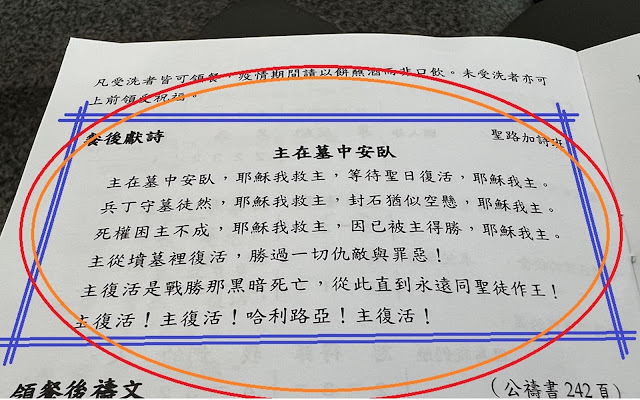 凡受洗者皆可領餐，疫情期間請以餅蘸酒而非口飲。未受洗者亦可
上前領受祝福。
餐後獻詩 聖路加詩班
主在墓中安臥
主在墓中安臥，耶穌我救主，等待聖日復活，耶穌我主。
兵丁守墓徒然，耶穌我救主，封石猶似空懸，耶穌我主。
死權困主不成，耶穌我救主，因已被主得勝，耶穌我主。
主從墳墓裡復活，勝過一切仇敵與罪惡！
主復活是戰勝那黑暗死亡，從此直到永遠同聖徒作王！
主復活！主復活！哈利路亞！主復活！
領餐後禱文 (公禱書 242 頁)